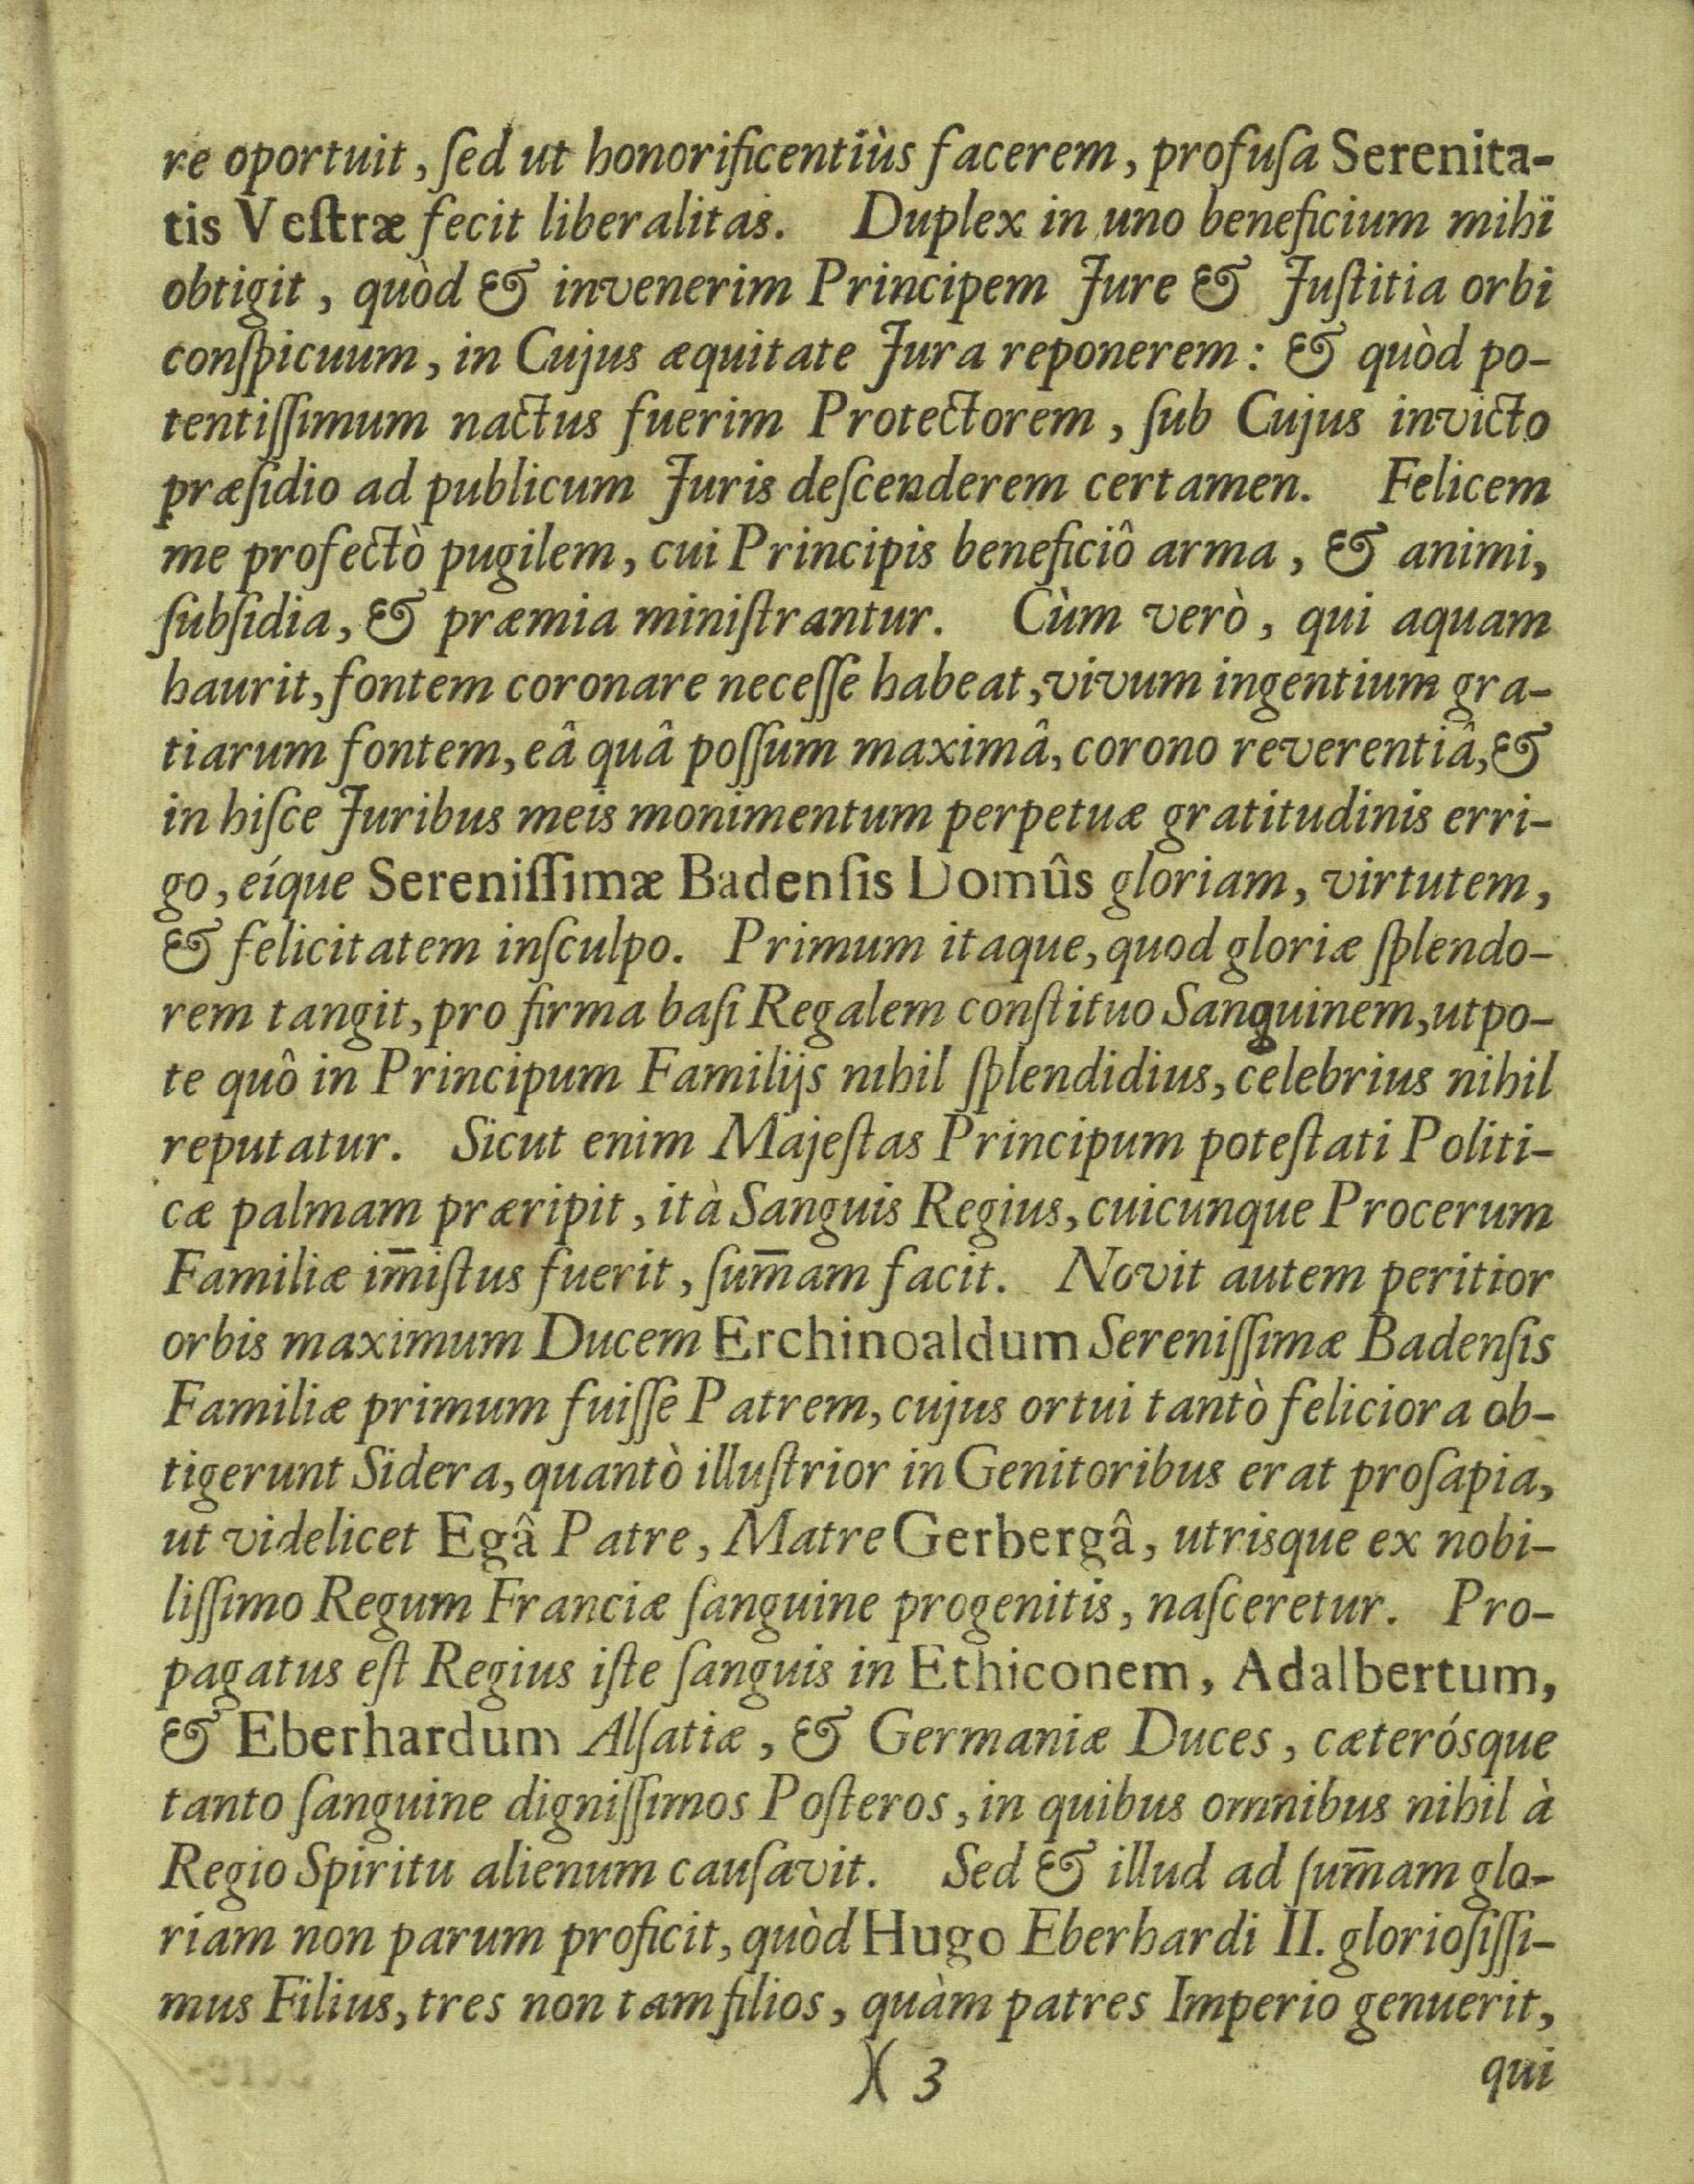 re oportuit, ſed ut honorificentiùs facerem, profuſa Serenita-
tis Veſtræ fecit liberalitas. Duplex in uno beneficium mihi
obtigit, quòd & invenerim Principem Jure & Juſtitia orbi
conſpicuum, in Cujus æquitate Jura reponerem: & quòd po-
tentiſſimum nactus fuerim Protectorem, ſub Cujus invicto
præſidio ad publicum Juris deſcenderem certamen. Felicem
me profectò pugilem, cui Principis beneficiô arma, & animi,
ſubſidia, & præmia miniſtrantur. Cùm verò, qui aquam
haurit, fontem coronare neceſſe habeat, vivum ingentium gra-
tiarum fontem, eâ quâ poſſum maximâ, corono reverentiâ, &
in hiſce Juribus meis monimentum perpetuæ gratitudinis erri-
go, eíque Sereniſſimæ Badenſis Domûs gloriam, virtutem,
& felicitatem inſculpo. Primum itaque, quod gloriæ ſplendo-
rem tangit, pro firma baſi Regalem conſtituo Sanguinem, utpo-
te quô in Principum Familijs nihil ſplendidius, celebrius nihil
reputatur. Sicut enim Majeſtas Principum poteſtati Politi-
cæ palmam præripit, ità Sanguis Regius, cuicunque Procerum
Familiæ im̄iſtus fuerit, ſum̄am facit. Novit autem peritior
orbis maximum Ducem Erchinoaldum Sereniſſimæ Badenſis
Familiæ primum fuiſſe Patrem, cujus ortui tantò feliciora ob-
tigerunt Sidera, quantò illuſtrior in Genitoribus erat proſapia,
ut videlicet Egâ Patre, Matre Gerbergâ, utrisque ex nobi-
liſſimo Regum Franciæ ſanguine progenitis, naſceretur. Pro-
pagatus eſt Regius iſte ſanguis in Ethiconem, Adalbertum,
& Eberhardum Alſatiæ, & Germaniæ Duces, cæterósque
tanto ſanguine digniſſimos Poſteros, in quibus omnibus nihil à
Regio Spiritu alienum cauſavit. Sed & illud ad ſum̄am glo-
riam non parum proficit, quòd Hugo Eberhardi II. glorioſiſſi-
mus Filius, tres non tam filios, quàm patres Imperio genuerit,
)( 3
qui